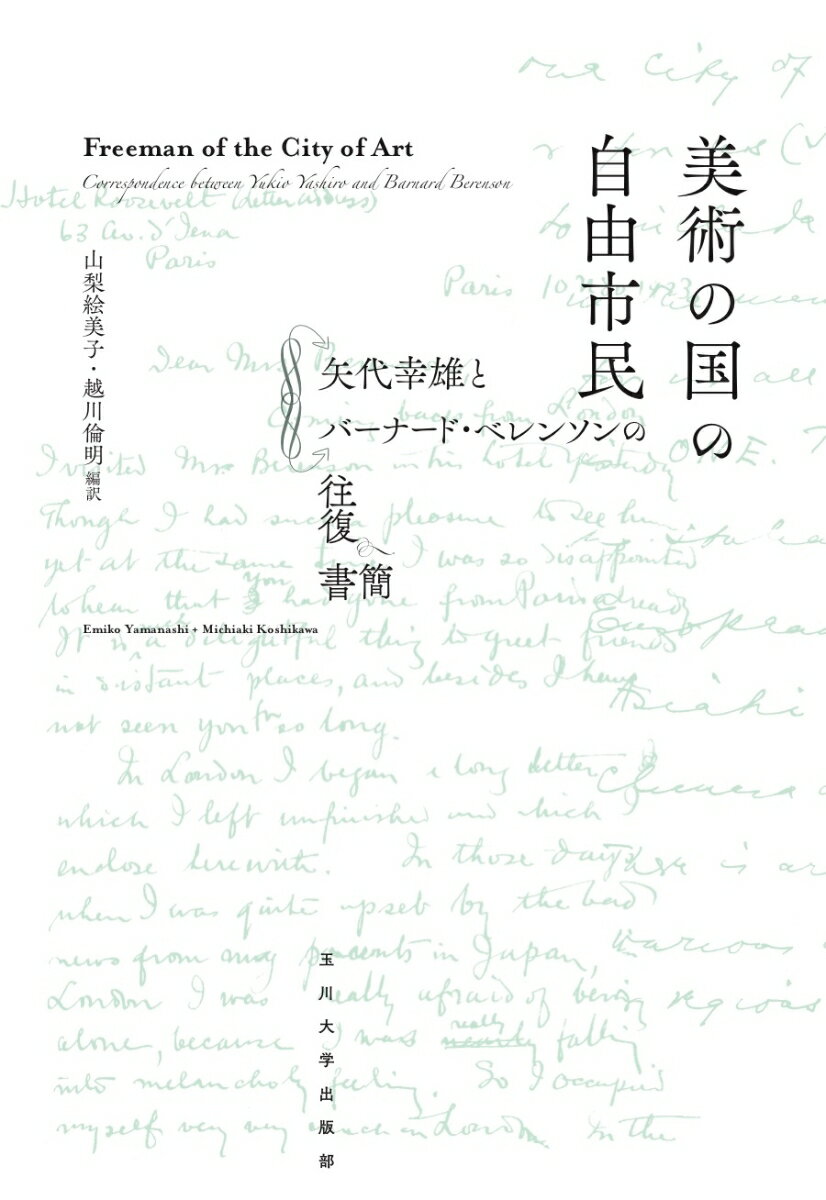 美術の国の
自由市民
矢代幸雄と
バーナード・ベレンソンの
往復
書簡
Freeman of the City of Art
Correspondence between Yukio Yashiro and Barnard Berenson
山梨絵美子・越川倫明 編訳
Emiko Yamanashi + Michiaki Koshikawa
玉川大学出版部
our City of
Hotel Roosevelt (letter address)
63 Av. d'Iena
Paris
Dear Mrs. Berenson
Coming back from London
I visited Mr. Berenson in his hotel yesterday
Though I had such a pleasure to see him
yet at the same time I was so disappointed
to hear that you had gone from Paris already
It is a delightful thing to greet friends
in distant places, and besides I have
not seen you for so long.
In London I began a long letter
which I left unfinished and which I
enclose herewith. In those days
when I was quite upset by the bad
news from my parents in Japan,
London I was really afraid of being
alone, because I was really falling
into melancholy feeling. So I occupied
myself very very much in London. In the